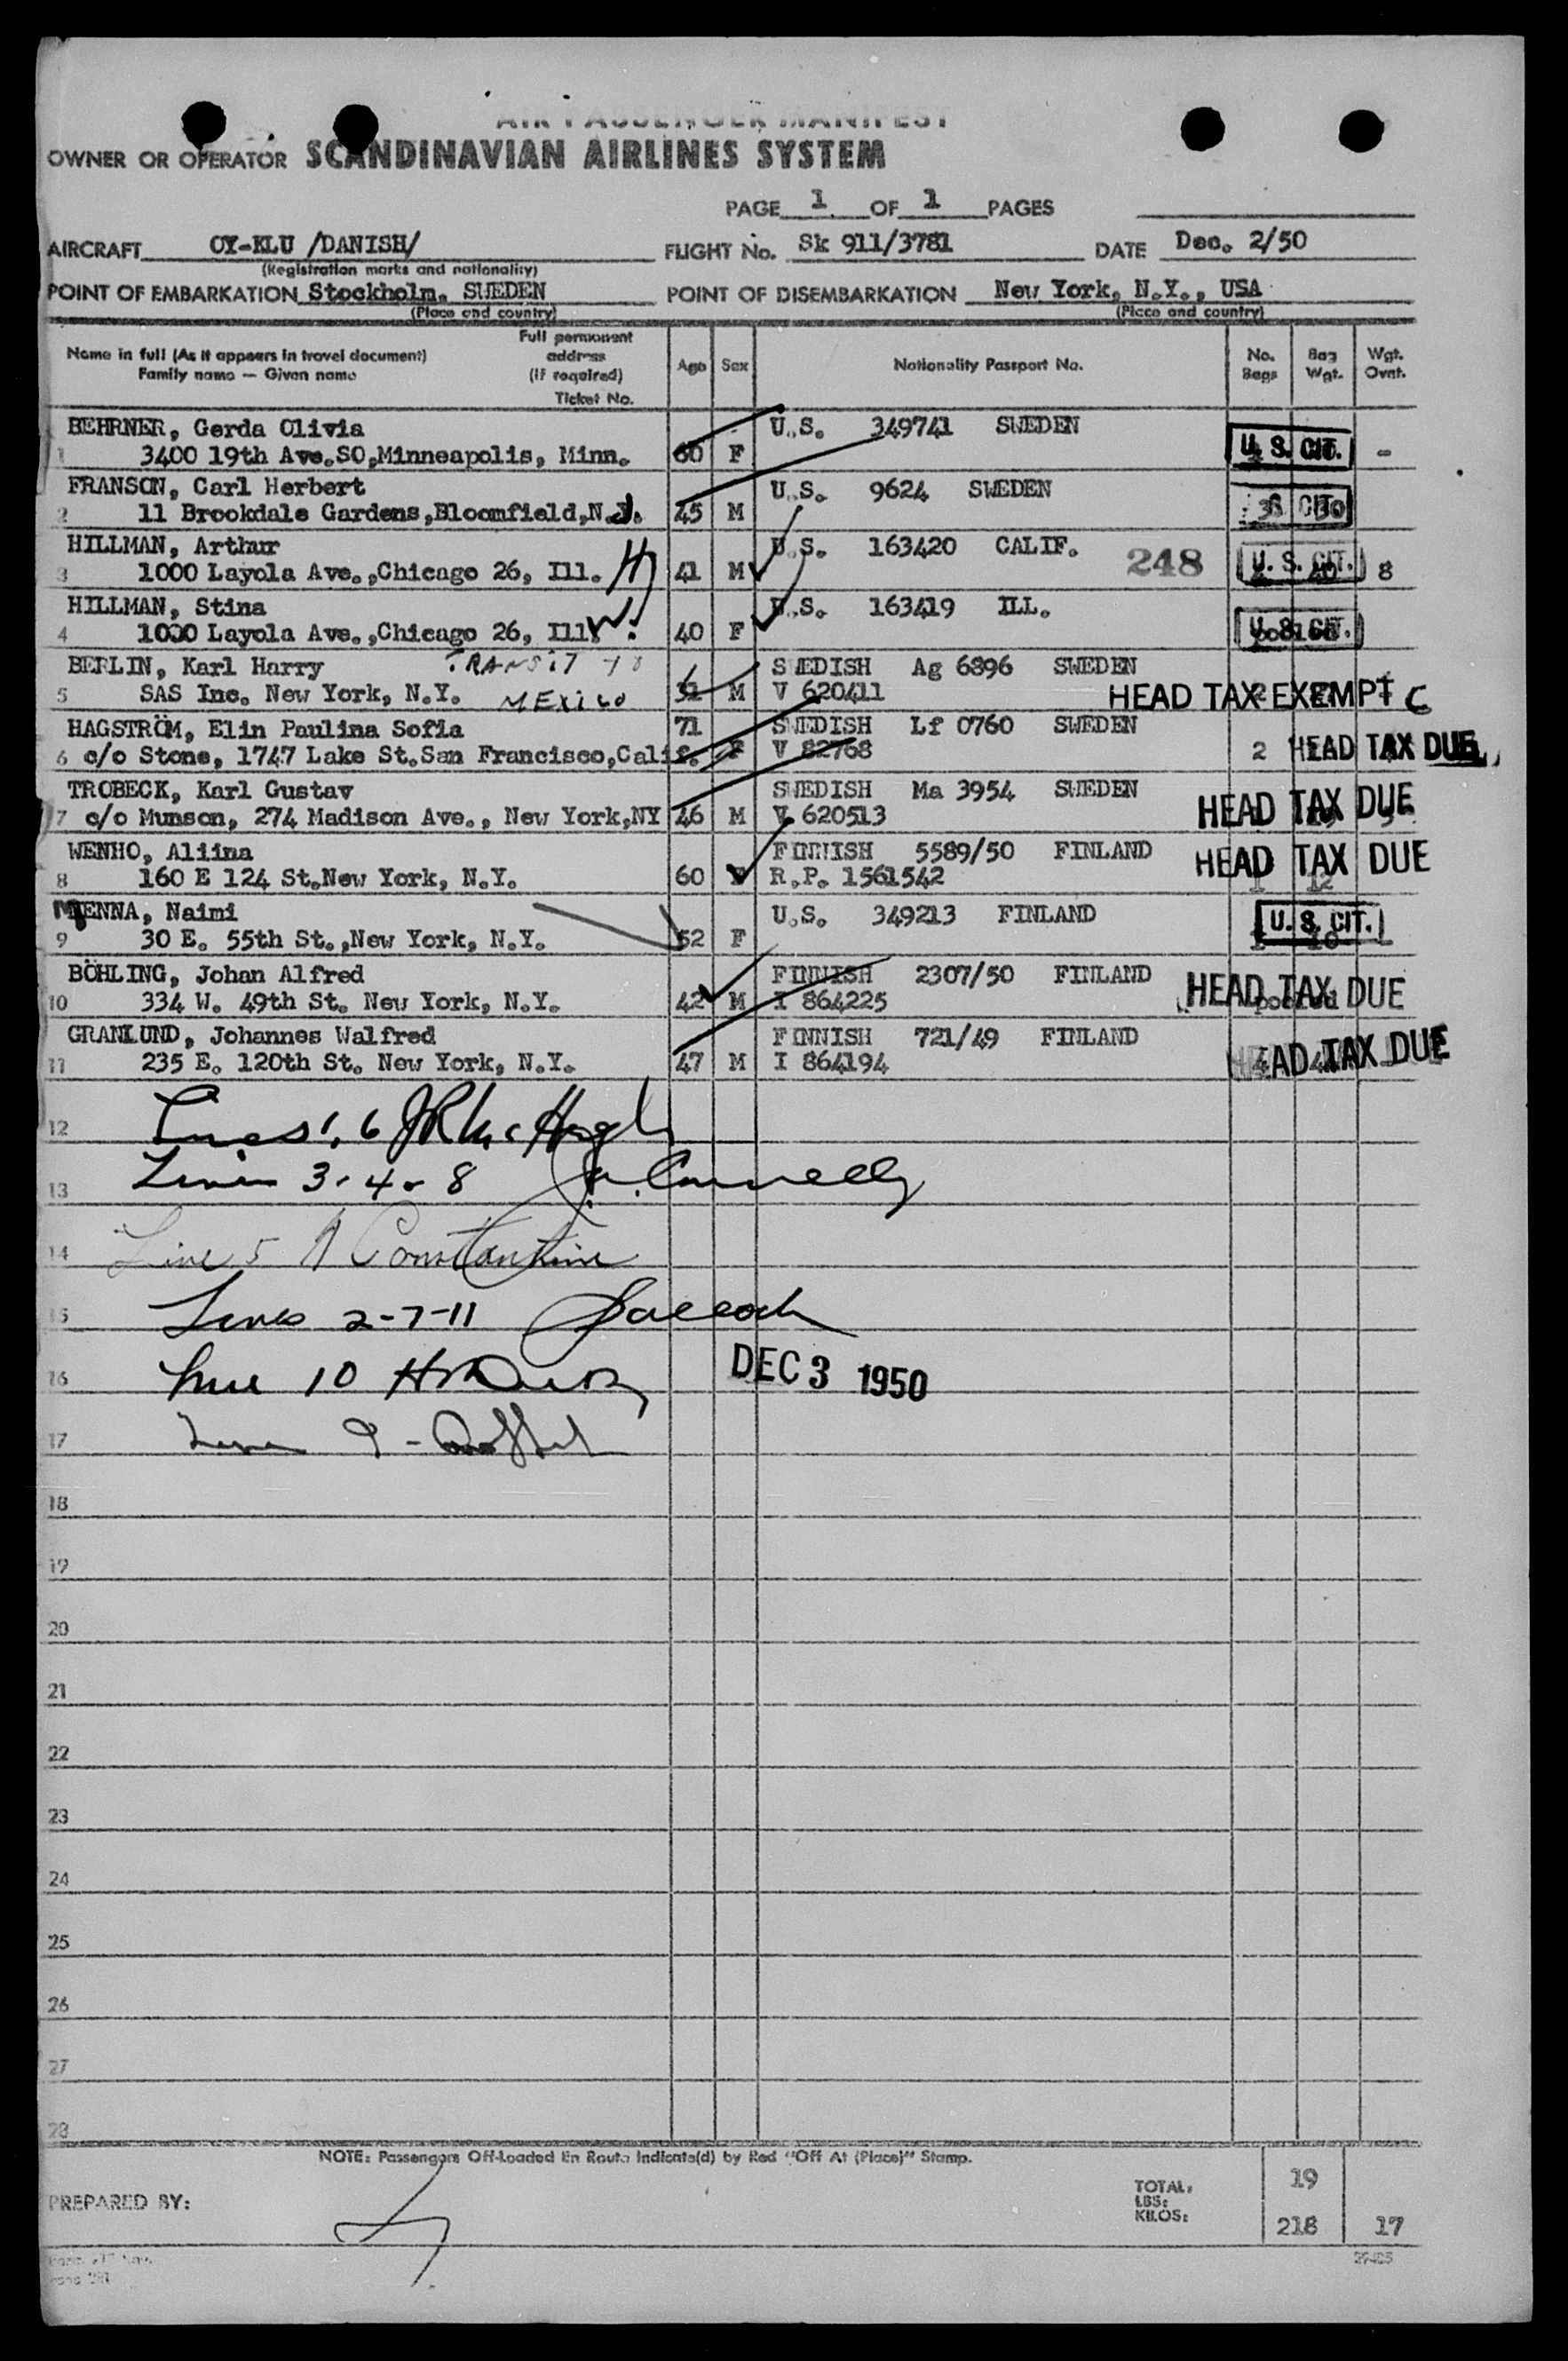 AIR PASSENGER MANIFEST
OWNER OR OPERATOR SCANDINAVIAN AIRLINES SYSTEM
PAGE 1 OF 1 PAGES
AIRCRAFT OY-KLU /DANISH/ FLIGHT No. Sk 911/3781 DATE Dec. 2/50
(Registration marks and nationality)
POINT OF EMBARKATION Stockholm, SWEDEN POINT OF DISEMBARKATION New York, N.Y., USA
(Place and country) (Place and country)
Name in full (As it appears in travel document) Family name — Given name Full permanent address (If required) Ticket No. Age Sex Nationality Passport No. No. Bags Bag Wgt. Wgt. Ovnt.
BEHRNER, Gerda Olivia U.S. 349741 SWEDEN
1 3400 19th Ave.SO,Minneapolis, Minn. 60 F U. S. CIT. -
FRANSON, Carl Herbert U.S. 9624 SWEDEN
2 11 Brookdale Gardens,Bloomfield,N.J. 45 M CIT
HILLMAN, Arthur U.S. 163420 CALIF. 248
3 1000 Layola Ave.,Chicago 26, Ill. H 41 M U. S. CIT. 8
HILLMAN, Stina U.S. 163419 ILL.
4 1000 Layola Ave.,Chicago 26, Ill. 40 F U. S. CIT.
BERLIN, Karl Harry TRANSIT to SWEDISH Ag 6896 SWEDEN
5 SAS Inc. New York, N.Y. MEXICO 31 M V 620411 HEAD TAX EXEMPT C
HAGSTRÖM, Elin Paulina Sofia 71 SWEDISH Lf 0760 SWEDEN
6 c/o Stone, 1747 Lake St.San Francisco,Calif. F V 82768 2 HEAD TAX DUE
TROBECK, Karl Gustav SWEDISH Ma 3954 SWEDEN
7 c/o Munson, 274 Madison Ave., New York,NY 46 M V 620513 HEAD TAX DUE
WENHO, Aliina FINNISH 5589/50 FINLAND HEAD TAX DUE
8 160 E 124 St.New York, N.Y. 60 R.P. 1561542 1 12
MENNA, Naimi U.S. 349213 FINLAND U. S. CIT.
9 30 E. 55th St.,New York, N.Y. 52 F 10
BÖHLING, Johan Alfred FINNISH 2307/50 FINLAND HEAD TAX DUE
10 334 W. 49th St. New York, N.Y. 42 M I 864225
GRANLUND, Johannes Walfred FINNISH 721/49 FINLAND HEAD TAX DUE
11 235 E. 120th St. New York, N.Y. 47 M I 864194
12 Lines 1, 6 JR McHugh
13 Lines 3-4-8 J. Connelly
14 Line 5 Constantine
15 Lines 2-7-11
16 Line 10 DEC 3 1950
17 Line 9 -
18
19
20
21
22
23
24
25
26
27
28
NOTE: Passengers Off-Loaded En Route Indicate(d) by Red "Off At (Place)" Stamp.
PREPARED BY: TOTAL: 19
LBS:
KILOS: 218 17